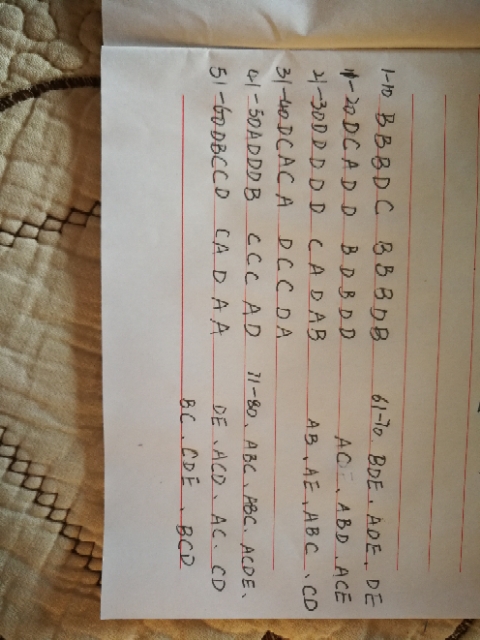 1-10 BBBDC BBBDB 61-70、BDE、ADE、DE
11-20 DCADD BDBDD ABD、ACE
21-30 DDDDD CADAB AB、AE、ABC、CD
31-40 DCACA DCCDA
41-50 ADDDB CCCAD 71-80、ABC、ABC、ACDE、
51-60 DBCCD CADAA DE、ACD、AC、CD
BC、CDE、BCD